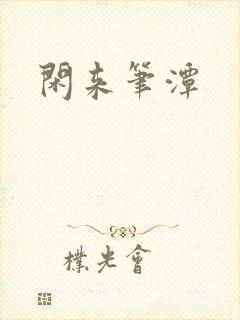 閑来筆潭
樸光會